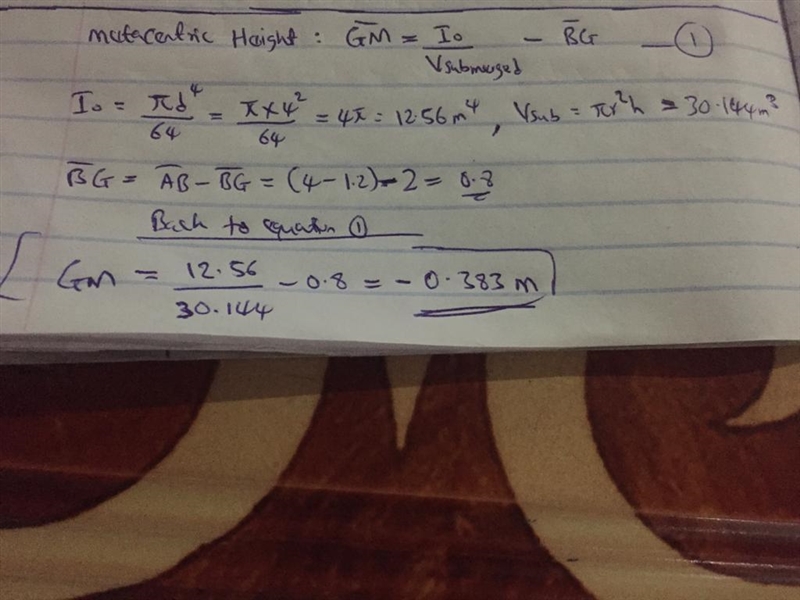 Metacentric Height : G̅M̅ = I₀ / Vsubmerged - B̅G̅ — ①
I₀ = πd⁴/64 = π×4²/64 = 4π = 12.56 m⁴ , Vsub = πr²h = 30.144m³
B̅G̅ = A̅B̅ - B̅G̅ = (4-1.2)-2 = 0.8
Back to equation ①
GM = 12.56/30.144 - 0.8 = -0.383 m